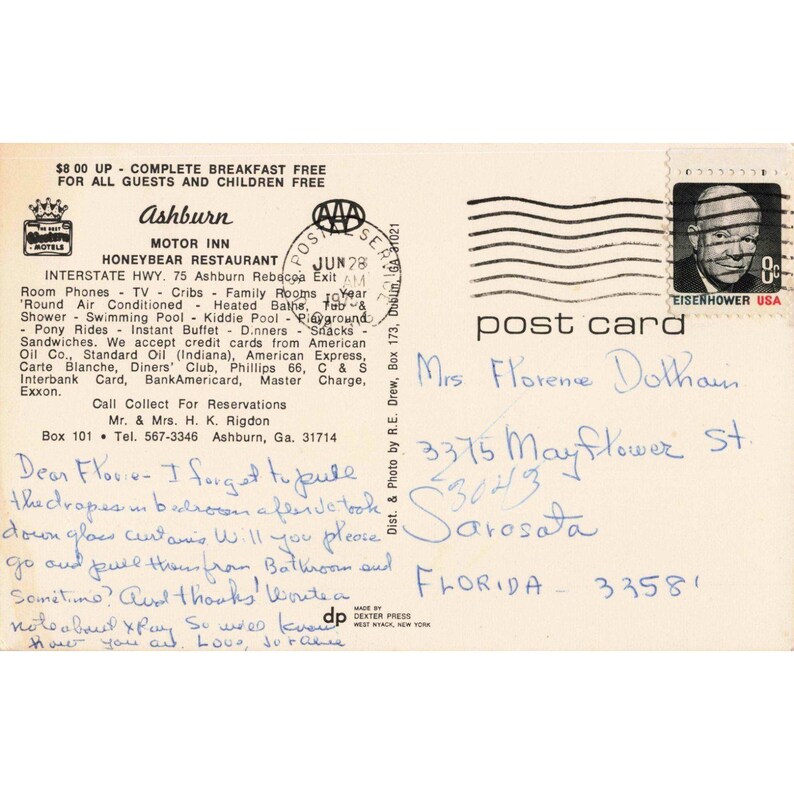 $8 00 UP - COMPLETE BREAKFAST FREE
FOR ALL GUESTS AND CHILDREN FREE
THE BEST
Western
MOTELS
Ashburn
AAA
MOTOR INN
HONEYBEAR RESTAURANT
INTERSTATE HWY. 75 Ashburn Rebecca Exit
Room Phones - TV - Cribs - Family Rooms - Year
'Round Air Conditioned - Heated Baths, Tub &
Shower - Swimming Pool - Kiddie Pool - Playground
- Pony Rides - Instant Buffet - Dinners - Snacks -
Sandwiches. We accept credit cards from American
Oil Co., Standard Oil (Indiana), American Express,
Carte Blanche, Diners' Club, Phillips 66, C & S
Interbank Card, BankAmericard, Master Charge,
Exxon.
Call Collect For Reservations
Mr. & Mrs. H. K. Rigdon
Box 101 • Tel. 567-3346 Ashburn, Ga. 31714
Dear Florie - I forget to pull
the drapes in bedroom after took
down glass curtains. Will you please
go and pull them from Bathroom and
sometime? And thanks! Wrote a
note about xRay so will know
how you are. Love,
Dist. & Photo by R.E. Drew, Box 173, Dublin, GA 31021
dp
MADE BY
DEXTER PRESS
WEST NYACK, NEW YORK
U.S. POSTAL SERVICE
JUN 28
AM
8c
EISENHOWER USA
post card
Mrs Florence Dotham
3375 Mayflower St.
3043
Sarosata
FLORIDA - 33581